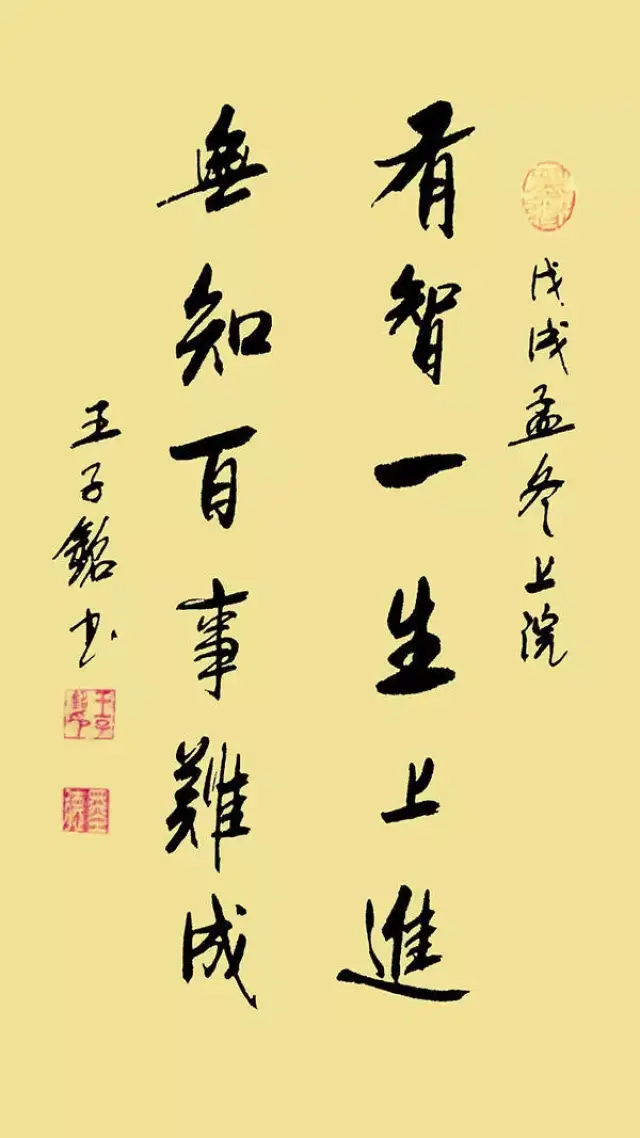 戊戌孟冬上浣
有智一生上進
無知百事難成
王子銘书